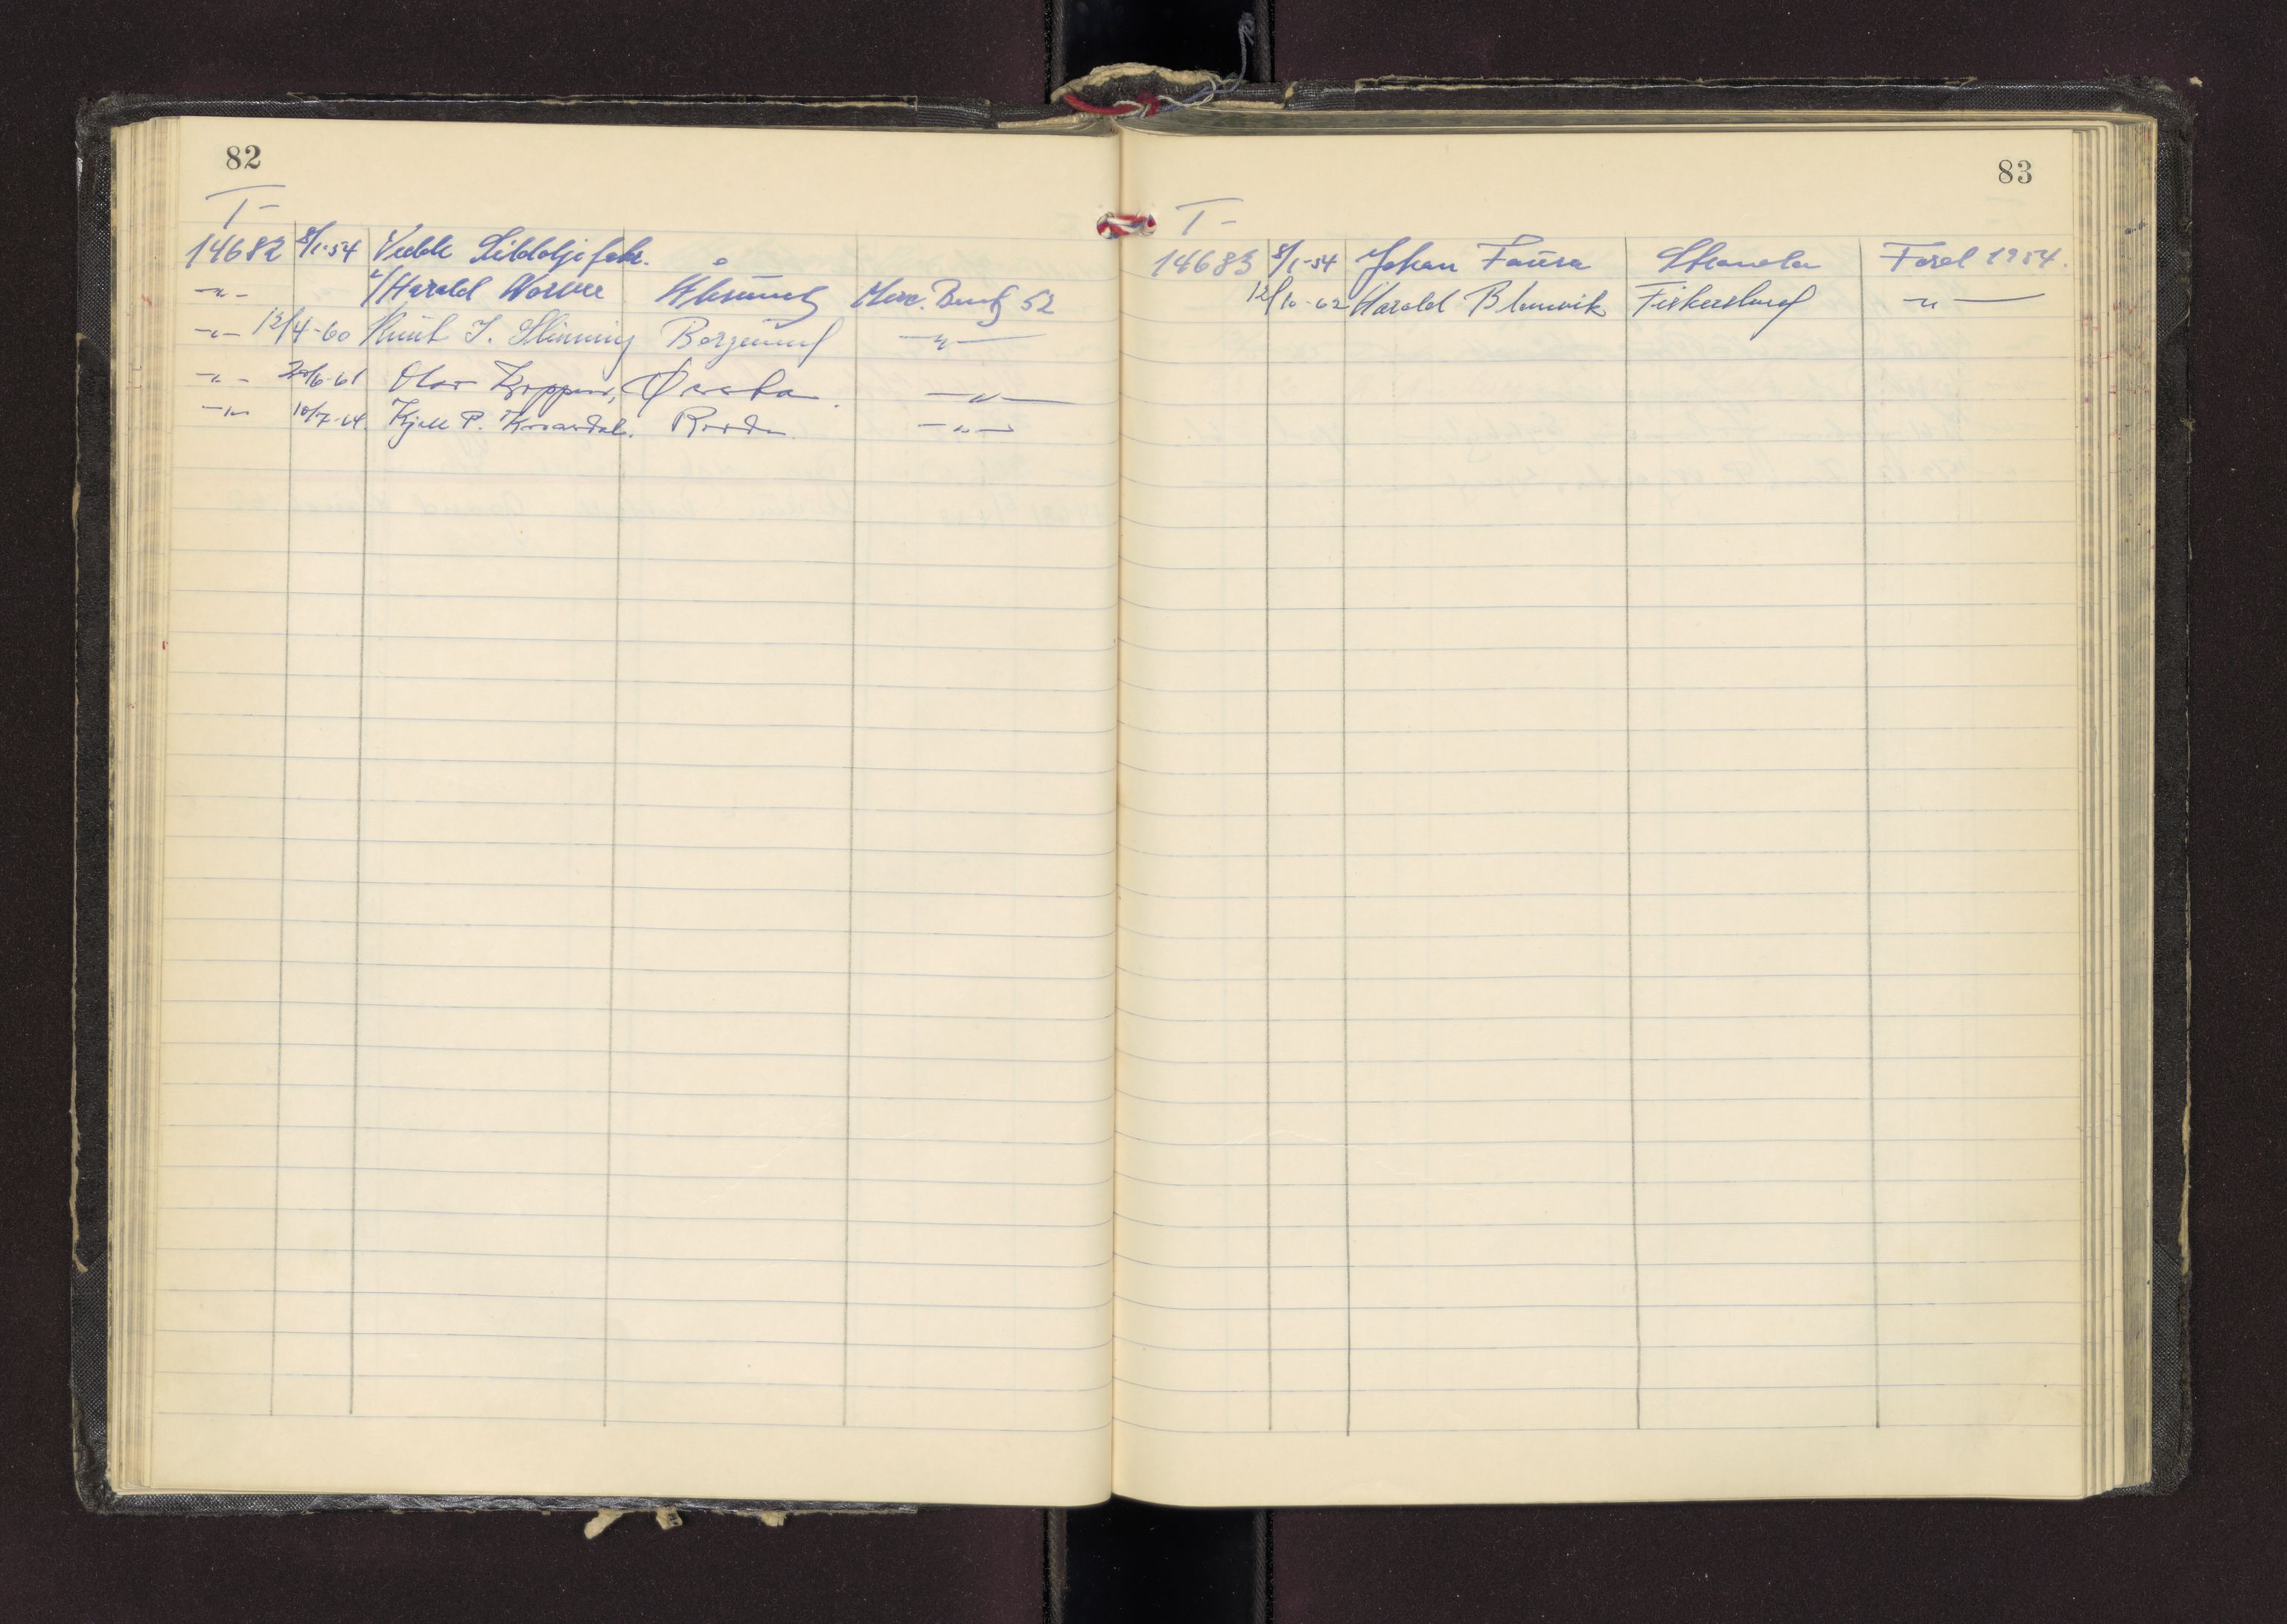 82
T-
14682 8/1-54 Vedde Sildoljefabr.
-"- v/Harald Worvee Ålesund Merc. Benz 52
-"- 12/4-60 Knut I. Slinning Borgund -"-
-"- 20/6-61 Olav Ørsta -"-
-"- 10/7-64. Kjell P. Rovde -"-
83
T-
14683 8/1-54 Johan Faura Stranda Ford 1954.
12/10-62 Harald Blomvik Fiskerstrand -"-